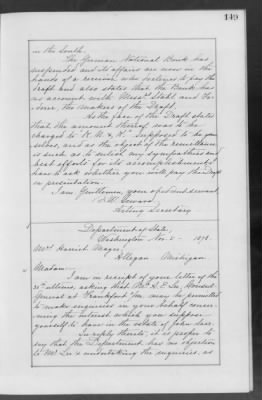 149
in the South.
The German National Bank has
suspended and its affairs are now in the
hands of a receiver who declines to pay the
draft and also states that the Bank has
no account with Messrs. Stahl and
the makers of the Draft.
As the face of the Draft states
that the amount thereof was to be
charged to K. M. & K. supposed to be your
selves, and as the object of the remittance
is such as to enlist my sympathies and
best efforts for its accomplishment, I
have to ask whether you will pay the Draft
on presentation.
I am, Gentlemen, your obedient servant,
F. W. Seward,
Acting Secretary
Department of State,
Washington Nov. 2 1878.
Mrs. Harriet
Allegan Michigan
Madam:
I am in receipt of your letter of the
ultimo, asking that Mr. Lee, Consul
General at Frankfort may be permitted
to make enquiries in your behalf concer-
ning the interest which you suppose
yourself to have in the estate of John
In reply thereto, it is proper to
say that the Department has no objection
to Mr. Lee's undertaking the enquiries, as